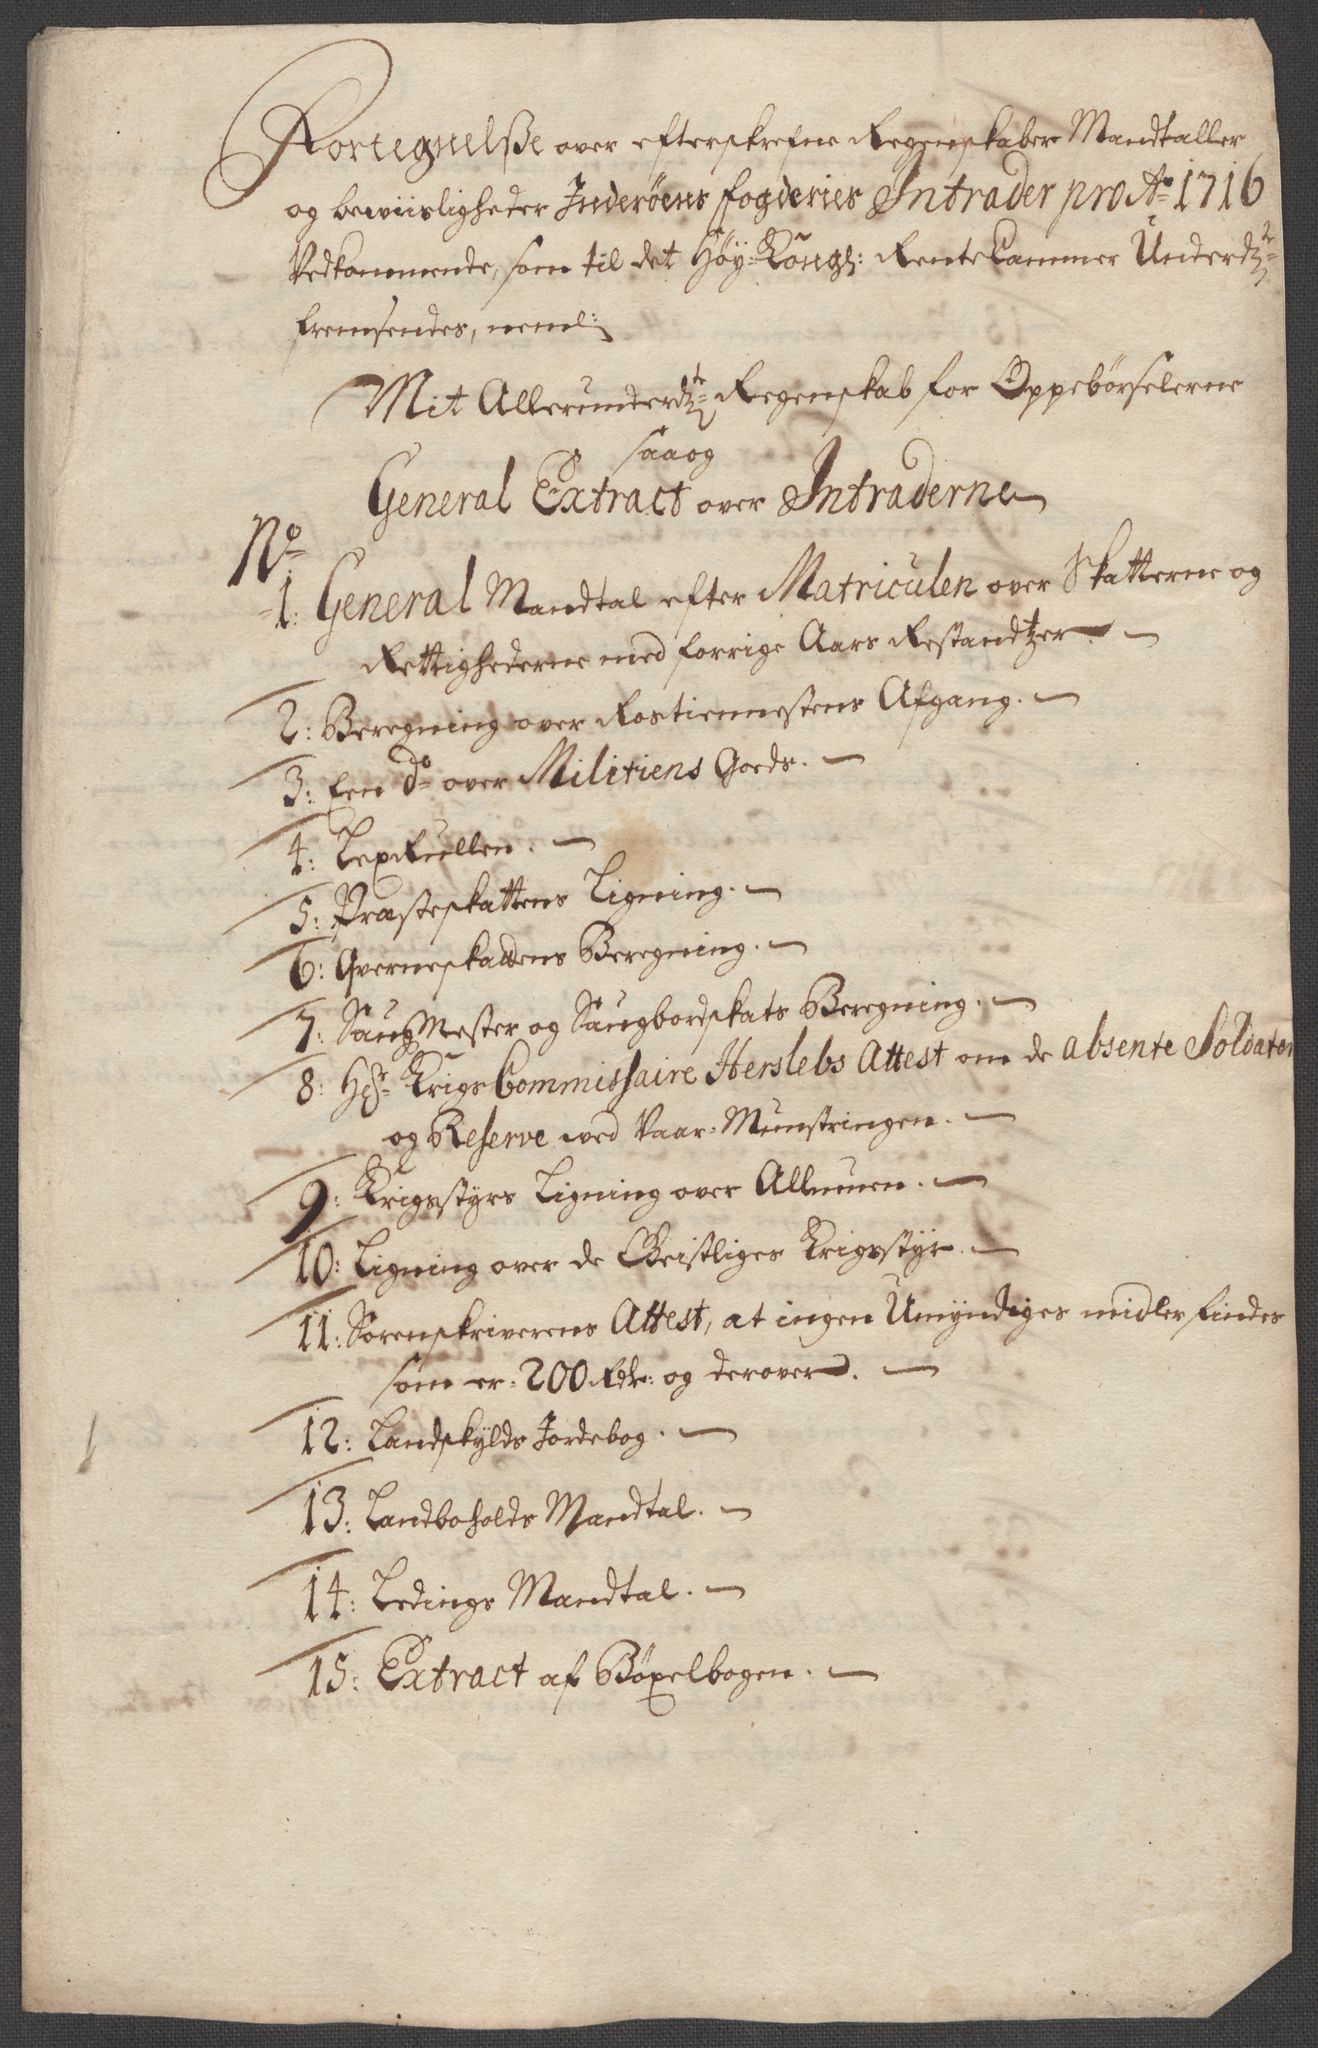 Fortegnelsße over efterskrefne Regenskaber Mandtaller
og beviisligheder Inderöens fogderies Intrader pro Ao 1716
Vedkommende, som til det Höy-Kongl: Rente Cammer Underdgte
fremsendes, neml:
Mit Allerunderdgte Regenskab for Oppebörselerne
saa og
General Extract over Intraderne
No
1: General Mandtal efter Matriculen over Skatterne og
Rettighederne med forrige Aars Restandtzer
2: Beregning over Rostiennestens Afgang.
3: Een do over Militiens Goeds.
4: LexRullen.
5: Præsteskattens Ligning.
6: Qverneskattens Beregning.
7: SaugMester og Saugbordskats Beregning.
8: Hr Krigs Commissaire Herslebs Attest om de absente Soldater
og Reserve ved Vaar-Munstringen.
9: Krigsstyrs Ligning over Allmuen.
10: Ligning over de Geistliges Krigsstyr.
11: Sorenskriverens Attest, at ingen Umyndiges midler findes
som er 200 Rdr: og derover.
12: Landskylds Jordebog.
13: Landboholds Mandtal.
14: Ledings Mandtal.
15: Extract af Böxelbogen.